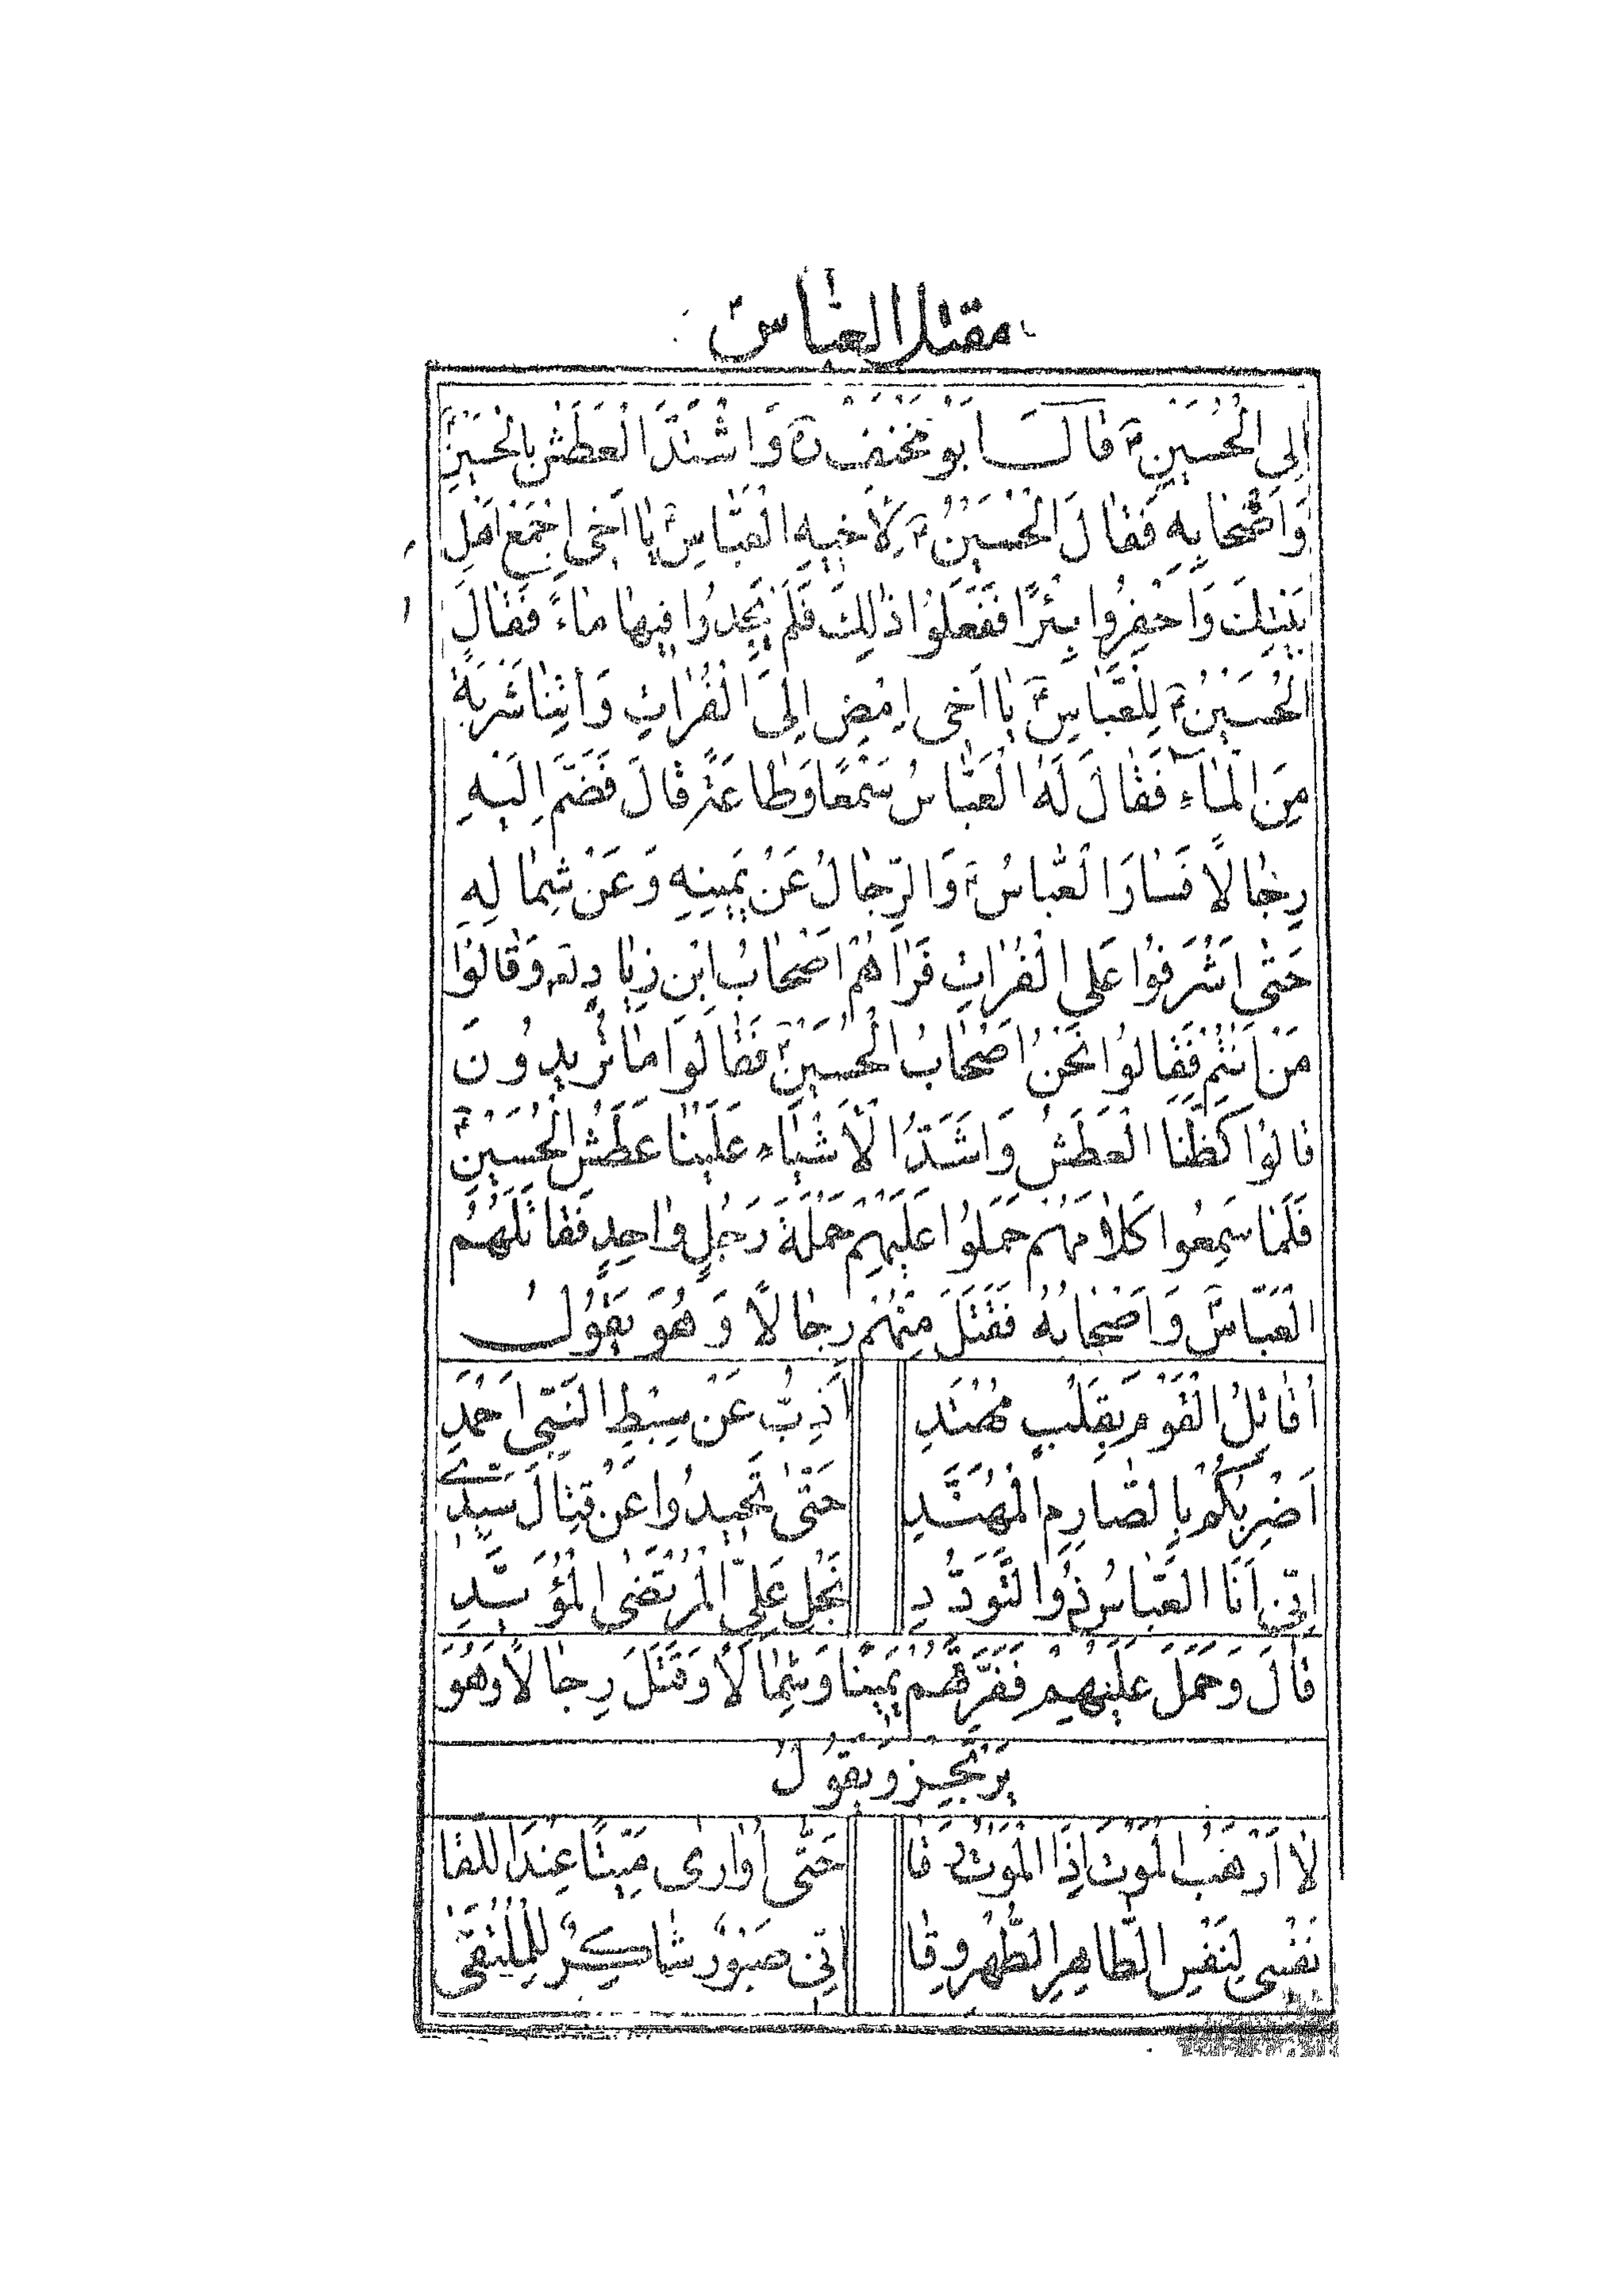 مقتل العباس
اِلَى الْحُسَيْنِ ع قالَ اَبُو مِخْنَفٍ ره وَاشْتَدَّ الْعَطَشُ بِالْحُسَيْنِ
وَاَصْحٰابِهِ فَقٰالَ الْحُسَيْنُ ع لِاَخيهِ الْعَبّٰاسِ ع يٰا اَخى اِجْمَعْ اَهْلَ
بَيْتِكَ وَاحْفِرُوا بِئْرًا فَفَعَلُوا ذٰلِكَ فَلَمْ يَجِدُوا فيهٰا مٰاءً فَقٰالَ
الْحُسَيْنُ ع لِلْعَبّٰاسِ ع يٰا اَخى اِمْضِ اِلَى الْفُرٰاتِ وَاْتِنٰا شَرْبَةً
مِنَ الْمٰآءِ فَقٰالَ لَهُ الْعَبّٰاسُ سَمْعًا وَطٰاعَةً قٰالَ فَضَمَّ اِلَيْهِ
رِجٰالًا فَسٰارَ الْعَبّٰاسُ ع وَالرِّجٰالُ عَنْ يَمينِهِ وَعَنْ شِمٰالِهِ
حَتّٰى اَشْرَفُوا عَلَى الْفُرٰاتِ فَرَاٰهُمْ اَصْحٰابُ ابْنِ زِيٰادٍ لع وَقٰالُوا
مَنْ اَنْتُمْ فَقٰالُوا نَحْنُ اَصْحٰابُ الْحُسَيْنِ ع فَقٰالُوا مٰا تُريدُونَ
قٰالُوا كَظَّنَا الْعَطَشُ وَاَشَدُّ الْاَشْيٰاءِ عَلَيْنٰا عَطَشُ الْحُسَيْنِ ع
فَلَمّٰا سَمِعُوا كَلٰامَهُمْ حَمَلُوا عَلَيْهِمْ حَمْلَةَ رَجُلٍ وٰاحِدٍ فَقٰاتَلَهُمُ
الْعَبّٰاسُ وَاَصْحٰابُهُ فَقَتَلَ مِنْهُمْ رِجٰالًا وَهُوَ يَقُولُ
اُقٰاتِلُ الْقَوْمَ بِقَلْبٍ مُهْتَدِ اَذُبُّ عَنْ سِبْطِ النَّبِيِّ اَحْمَدِ
اَضْرِبُكُمْ بِالصّٰارِمِ الْمُهَنَّدِ حَتّٰى تَحيدُوا عَنْ قِتٰالِ سَيِّدى
اِنّى اَنَا الْعَبّٰاسُ ذُوالتَّوَدُّدِ نَجْلُ عَلِيِّ الْمُرْتَضَى الْمُؤَيَّدِ
قٰالَ وَحَمَلَ عَلَيْهِمْ فَفَرَّقَهُمْ يَمينًا وَشِمٰالًا وَقَتَلَ رِجٰالًا وَهُوَ
يَرْتَجِزُ وَيَقُولُ
لٰا اَرْهَبُ الْمَوْتَ اِذَا الْمَوْتُ رَقٰا حَتّٰى اُوٰارٰى مَيِّتًا عِنْدَ اللِّقٰا
نَفْسى لِنَفْسِ الطّٰاهِرِ الطُّهْرِ وِقٰا اِنّى صَبُورٌ شٰاكِرٌ لِلْمُلْتَقٰى